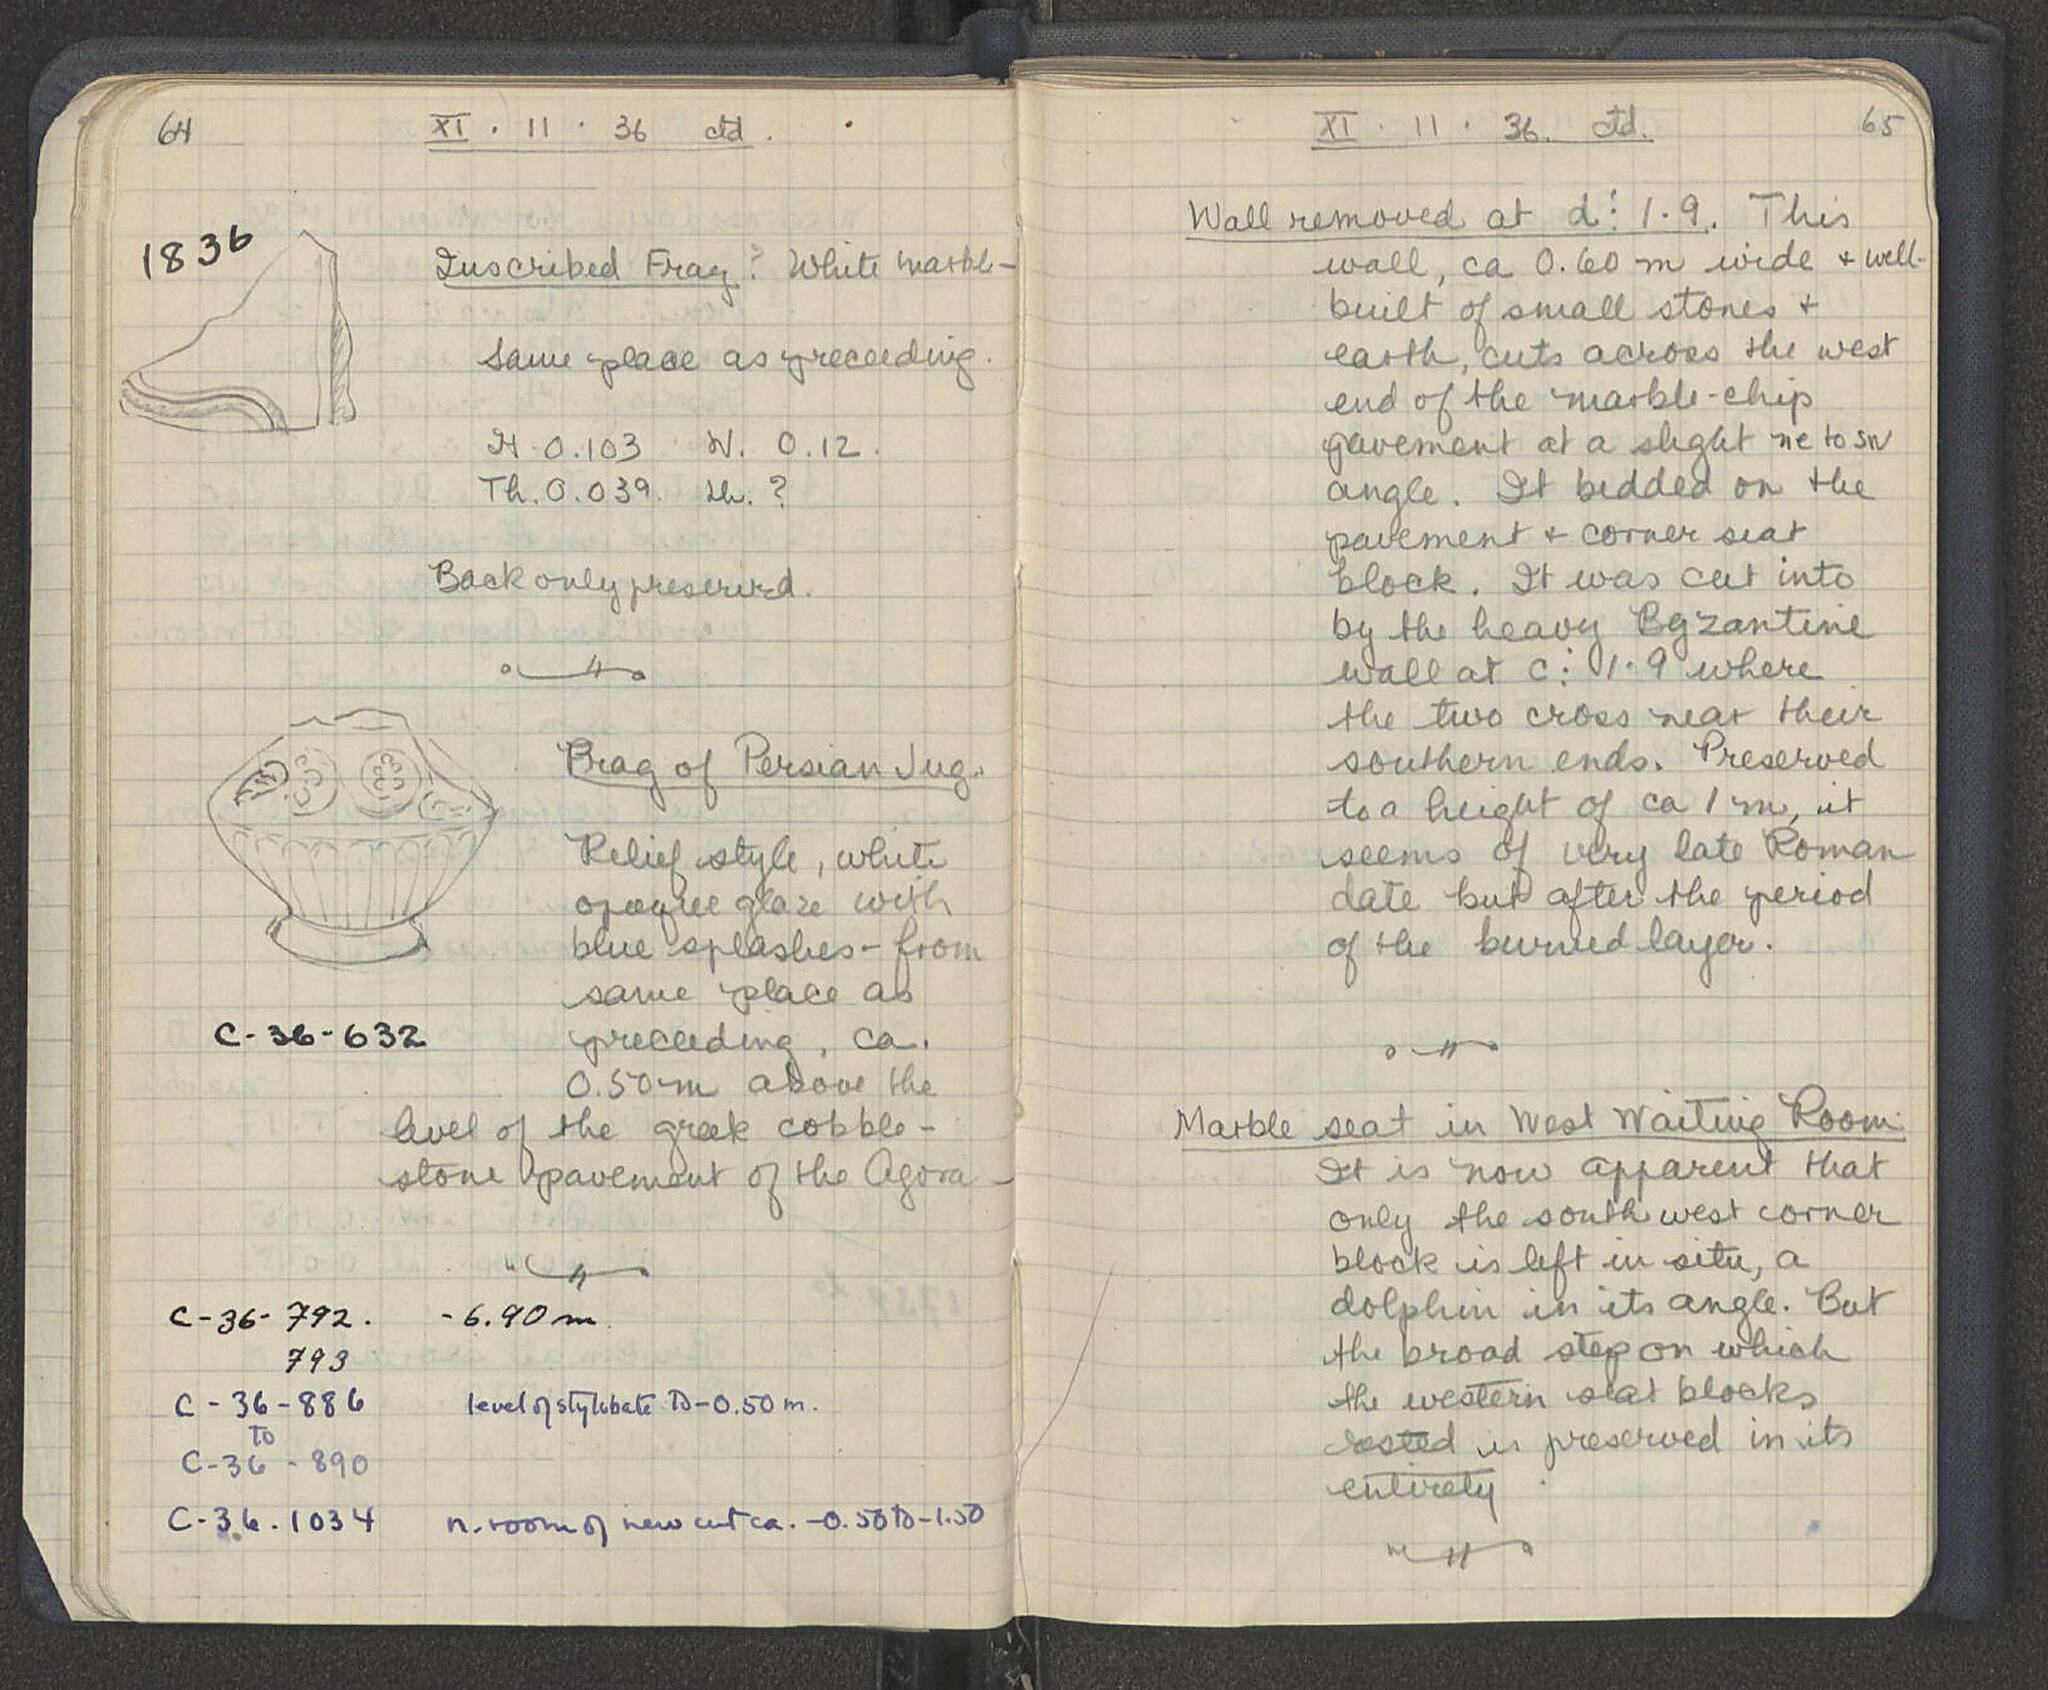 64
XI . 11 . 36 ctd.
1836
Inscribed Frag? White marble-
Same place as preceeding.
H 0.103 W. 0.12.
Th. 0.039. lh. ?
Back only preserved.
Frag of Persian Jug.
Relief style, white
opaque glaze with
blue splashes - from
same place as
C-36-632
preceeding, ca.
0.50m above the
level of the greek cobble-
stone pavement of the Agora-
C-36-792. -6.90 m.
793
C-36-886 level of stylobate to -0.50 m.
to
C-36-890
C-36.1034 n. room of new cut ca. -0.50 to -1.50
XI . 11 . 36. ctd. 65
Wall removed at d: 1.9. This
wall, ca 0.60 m wide + well-
built of small stones +
earth, cuts across the west
end of the marble-chip
pavement at a slight ne to sw
angle. It bedded on the
pavement + corner seat
block. It was cut into
by the heavy Byzantine
wall at c: 1.9 where
the two cross near their
southern ends. Preserved
to a height of ca 1 m, it
seems of very late Roman
date but after the period
of the burned layer.
Marble seat in West Waiting Room.
It is now apparent that
only the south west corner
block is left in situ, a
dolphin in its angle. But
the broad step on which
the western seat blocks
rested is preserved in its
entirety.